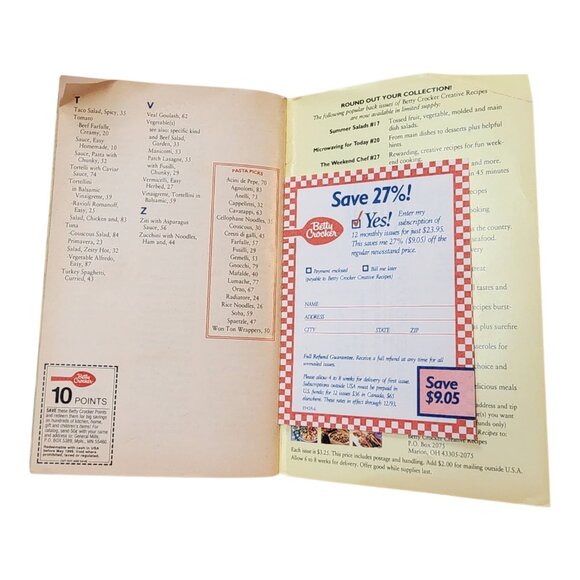 T
Taco Salad, Spicy, 35
Tomato
-Beef Farfalle,
Creamy, 20
Sauce, Easy
Homemade, 10
Sauce, Pasta with
Chunky, 52
Tortelli with Caviar
Sauce, 74
Tortellini
in Balsamic
Vinaigrette, 59
-Ravioli Romanoff,
Easy, 25
Salad, Chicken and, 83
Tuna
Couscous Salad, 84
Primavera, 23
Salad, Zesty Hot, 32
Vegetable Alfredo,
Easy, 87
Turkey Spaghetti,
Curried, 43
V
Veal Goulash, 62
Vegetable(s)
see also specific kind
and Beef Salad,
Garden, 33
Manicotti, 35
Parch Lasagne, 55
with Fusilli,
Chunky, 29
Vermicelli, Easy
Herbed, 27
Vinaigrette, Tortellini in
Balsamic, 59
Z
Ziti with Asparagus
Sauce, 56
Zucchini with Noodles,
Ham and, 44
PASTA PICKS
Acini de Pepe, 70
Agnolotti, 85
Anelli, 73
Cappelletti, 52
Cavatappi, 63
Cellophane Noodles, 51
Couscous, 30
Creste di galli, 45
Farfalle, 57
Fusilli, 29
Gemelli, 53
Gnocchi, 79
Mafalde, 40
Lumache, 77
Orzo, 67
Radiatore, 24
Rice Noodles, 26
Soba, 59
Spaetzle, 47
Won Ton Wrappers, 50
Betty Crocker
10 POINTS
SAVE these Betty Crocker Points
and redeem them for big savings
on hundreds of kitchen, home,
gift and children's items. For
catalog, send 50¢ with your name
and address to: General Mills,
P.O. Box 5389, Mpls., MN 55460.
Redeemable with cash in USA
before May 1999. Void where
prohibited, taxed or regulated.
ROUND OUT YOUR COLLECTION!
The following popular back issues of Betty Crocker Creative Recipes
are now available in limited supply:
Summer Salads #17 Tossed fruit, vegetable, molded and main
dish salads.
Microwaving for Today #20 From main dishes to desserts plus helpful
hints.
The Weekend Chef #27 Rewarding, creative recipes for fun week-
end cooking.
and more.
in 45 minutes
Save 27%!
Betty Crocker
Yes! Enter my
subscription of
12 monthly issues for just $23.95.
This saves me 27% ($9.05) off the
regular newsstand price.
Payment enclosed Bill me later
(payable to Betty Crocker Creative Recipes)
NAME
ADDRESS
CITY STATE ZIP
Full Refund Guarantee. Receive a full refund at any time for all
unmailed issues.
Please allow 4 to 8 weeks for delivery of first issue.
Subscriptions outside USA must be prepaid in
U.S. funds: for 12 issues $36 in Canada, $65
elsewhere. These rates in effect through 12/93.
Save
$9.05
seafood.
tastes and
recipes burst-
plus surefire
delicious meals
address and tip
(s) you want.
funds only)
Recipes to:
Betty Crocker Creative Recipes
P.O. Box 2075
Marion, OH 43305-2075
Each issue is $3.25. This price includes postage and handling. Add $2.00 for mailing outside U.S.A.
Allow 6 to 8 weeks for delivery. Offer good while supplies last.